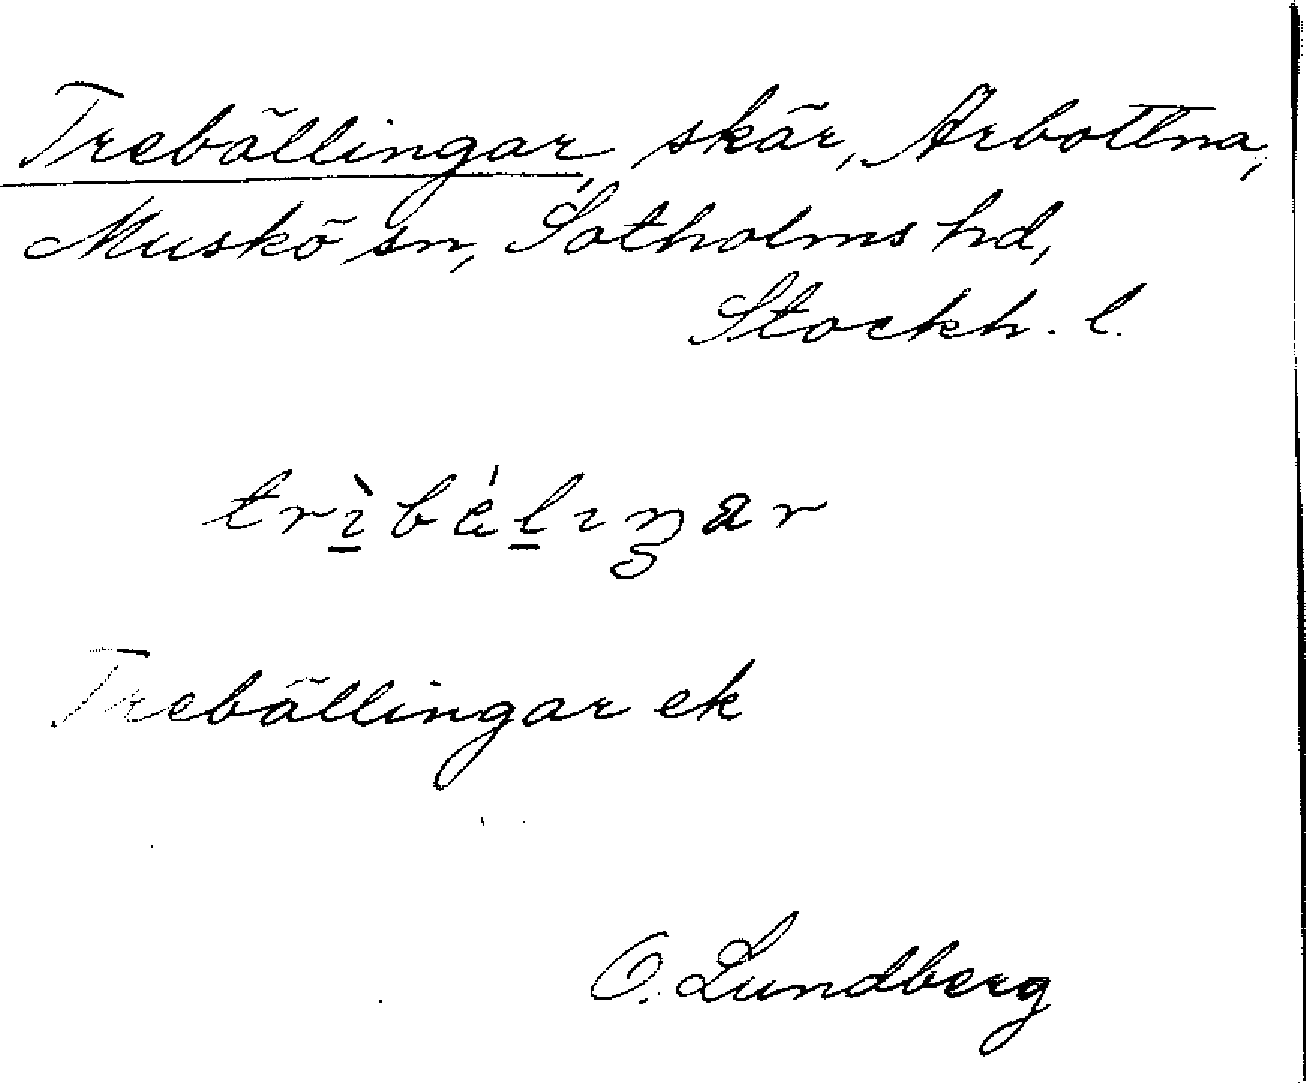 Trebällingar, skär, Arbottna,
Muskö sn, Sotholms hd,
Stockh. l.
trı̱̀bä́ḻıŋar
Trebällingar ek
O. Lundberg